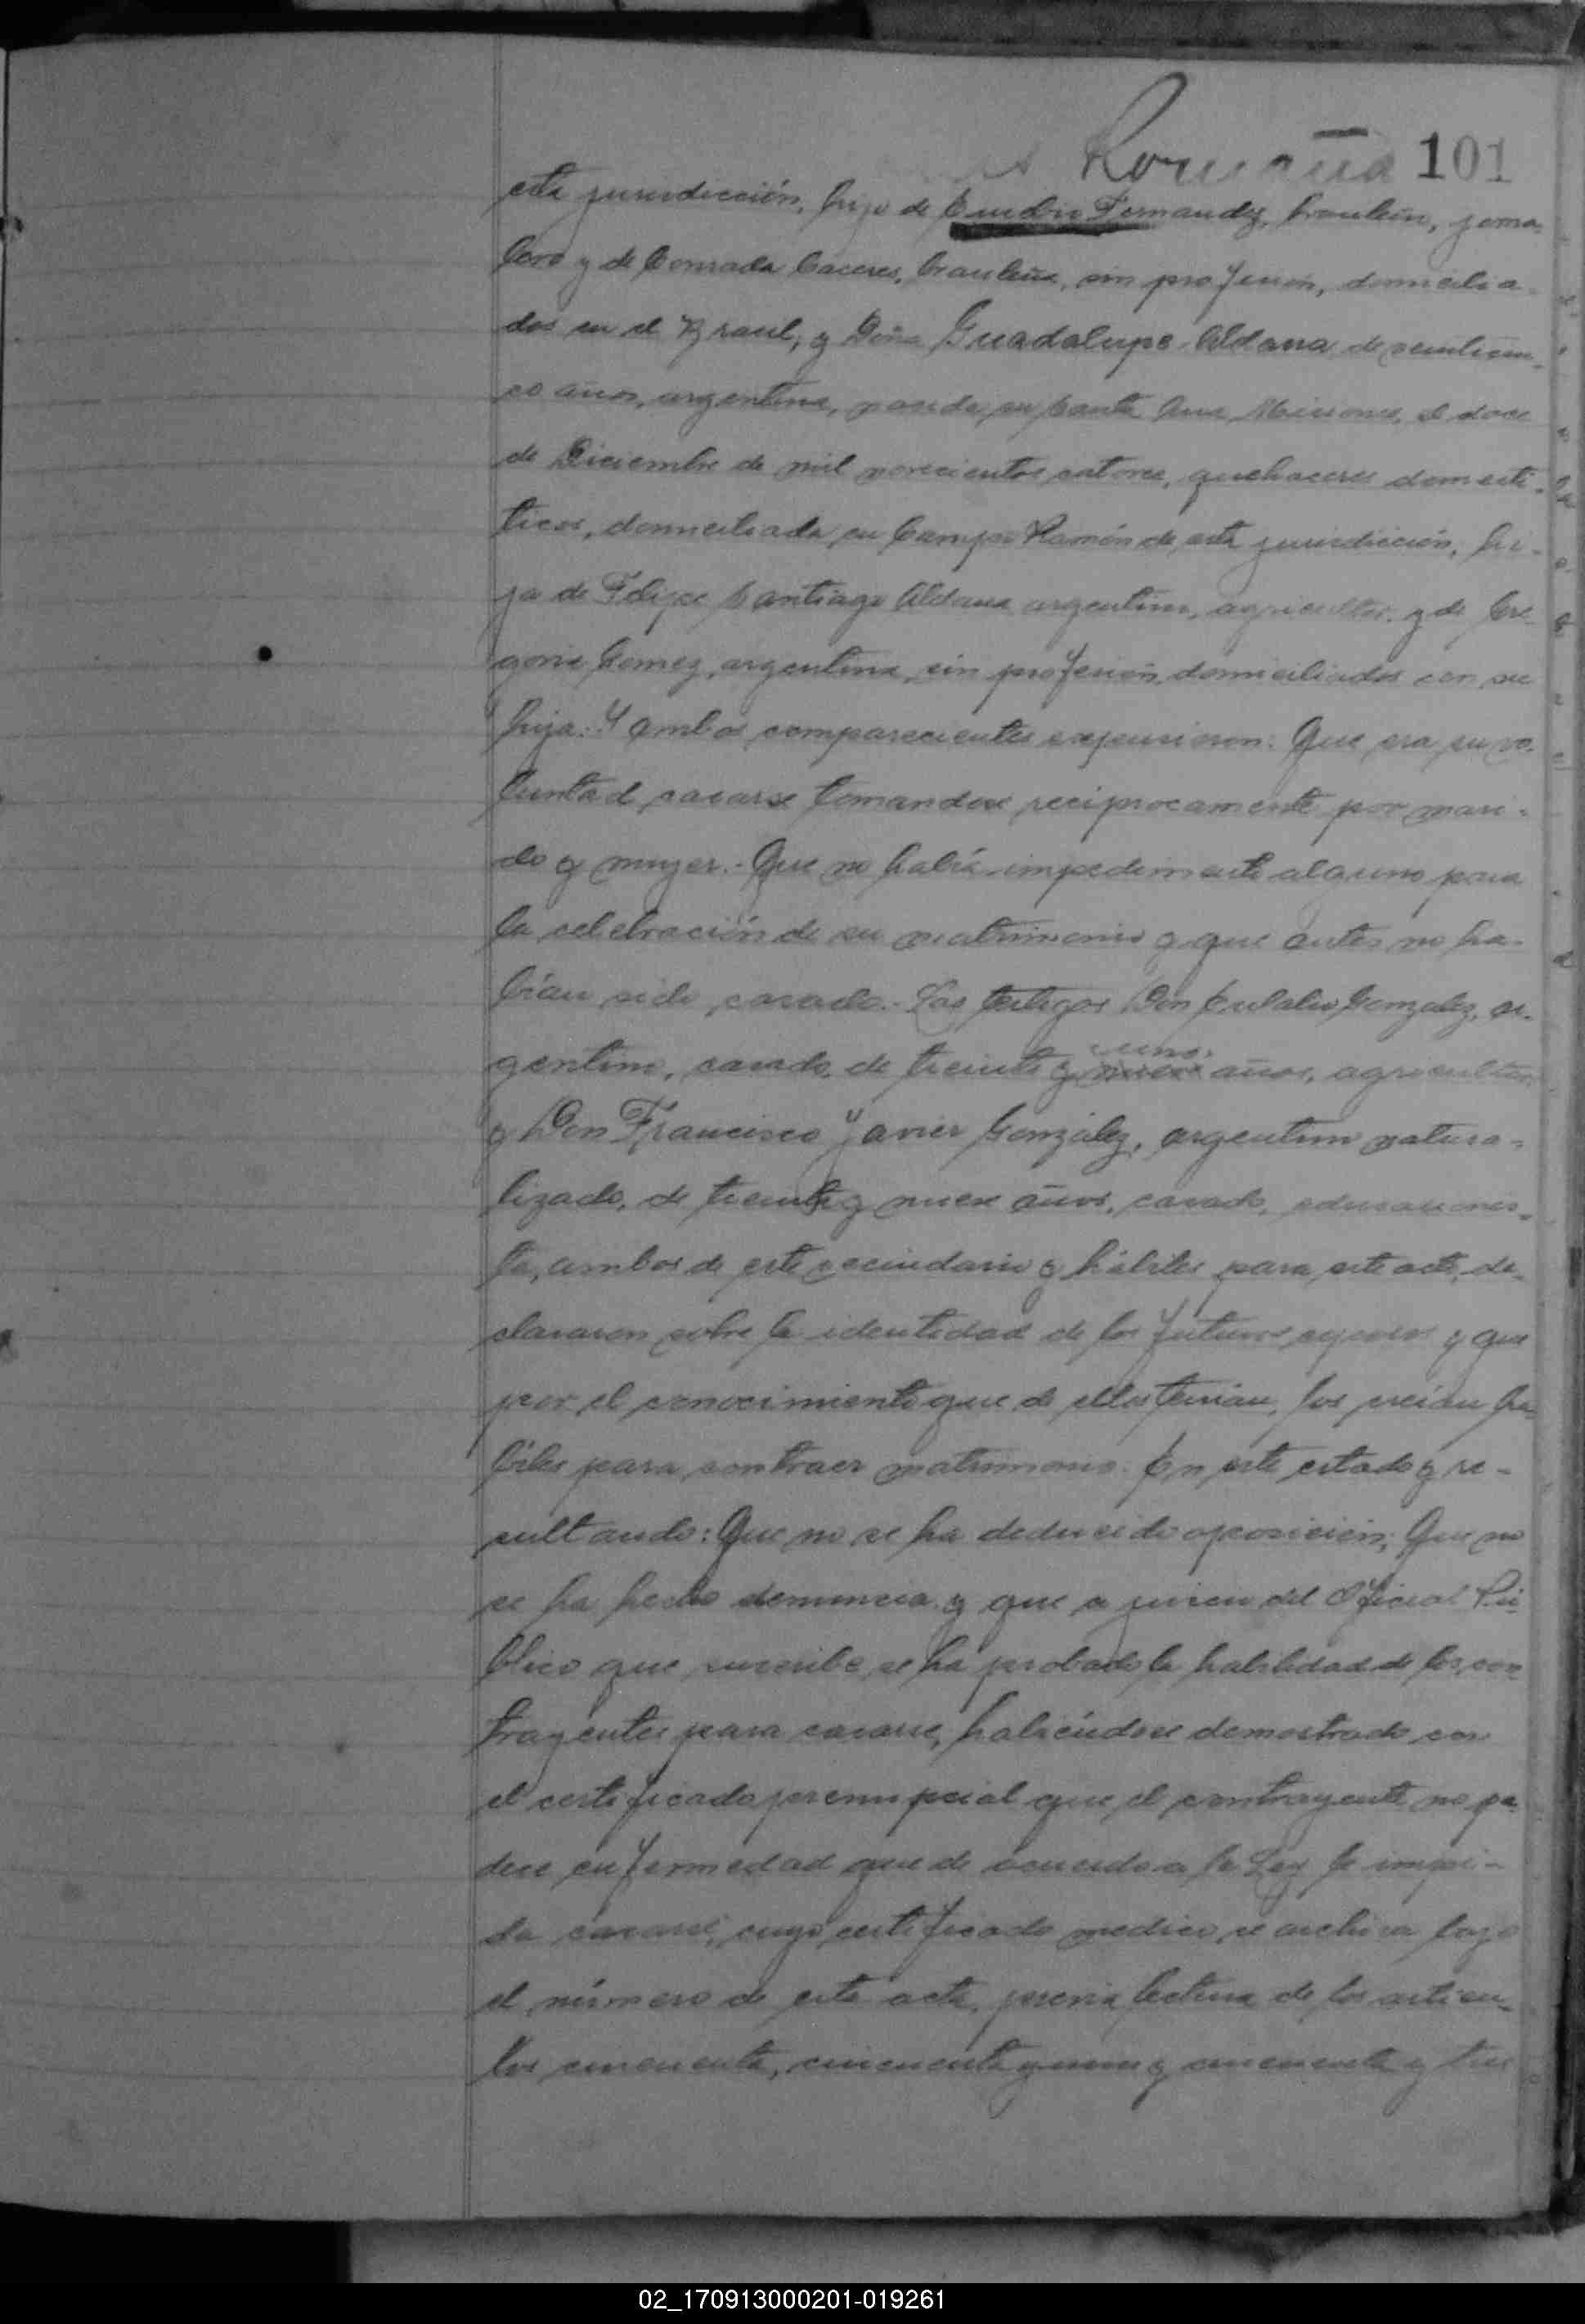 Romaña 101
esta jurisdicción, hijo de Eusebio Fernandez, brasileño, jorna-
lero y de Conrada Caceres, brasileña, sin profesión, domicilia-
dos en el Brasil; y Doña Guadalupe Aldana de veinticin-
co años, argentina, nacida en Santa Ana Misiones, el doce
de Diciembre de mil novecientos catorce, quehaceres domesti-
ticos, domiciliada en Campo Ramón de esta jurisdicción, hi-
ja de Felipe Santiago Aldana argentino, agricultor, y de Gre
goria Gomez, argentina, sin profesión, domiciliados con su
hija: Y ambos comparecientes expusieron: Que era su vo-
luntad casarse tomandose reciprocamente por mari-
do y mujer.- Que no había impedimento alguno para
la celebración de su matrimonio y que antes no ha-
bían sido casado.- Los testigos Don Eulalio Gonzalez, ar-
uno.
gentino, casado, de treinta y nueve años, agricultor
y Don Francisco Javier González, argentino natura-
lizado, de treinta y nueve años, casado, educacionis-
ta, ambos de este vecindario y hábiles para este acto, de-
clararon sobre la identidad de los futuros esposos y que
por el conocimiento que de ellos tenian, los creían há-
biles para contraer matrimonio. En este estado y re-
sultando: Que no se ha deducido oposición; Que no
se ha hecho denuncia y que a juicio del Oficial Pú-
blico que suscribe, se ha probado la habilidad de los con-
trayentes para casarse, habiéndose demostrado con
el certificado prenupcial que el contrayente no pa-
dece enfermedad que de acuerdo a la Ley le impi-
da casarse, cuyo certificado medico, se archiva bajo
el número de esta acta, previa lectura de los articu-
los cincuenta, cincuenta y uno y cincuenta y tres
02_170913000201-019261